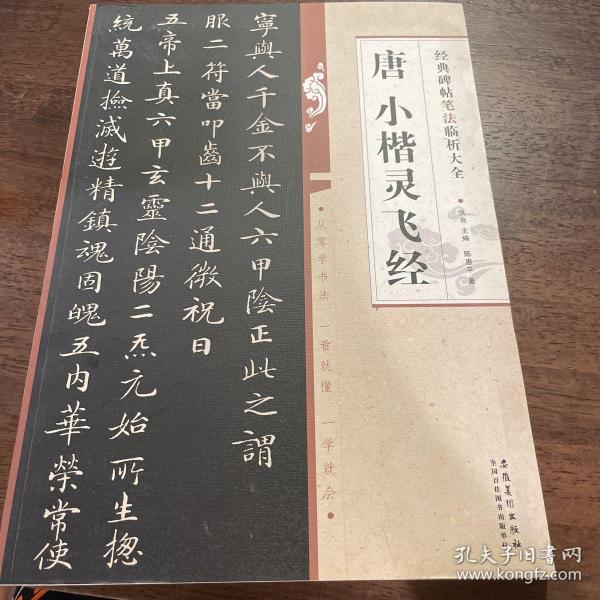 经典碑帖笔法临析大全
唐 小楷灵飞经
洪亮 主编 陈惠平 著
•从零学书法 一看就懂 一学就会•
寧與人千金不與人六甲陰正此之謂
服二符當叩齒十二通微祝曰
五帝上真六甲玄靈陰陽二炁元始所生揔
統萬道撿滅遊精鎮魂固魄五内華榮常使
安徽美術出版社
全国百佳图书出版单位
孔夫子旧书网
www.kongfz.com